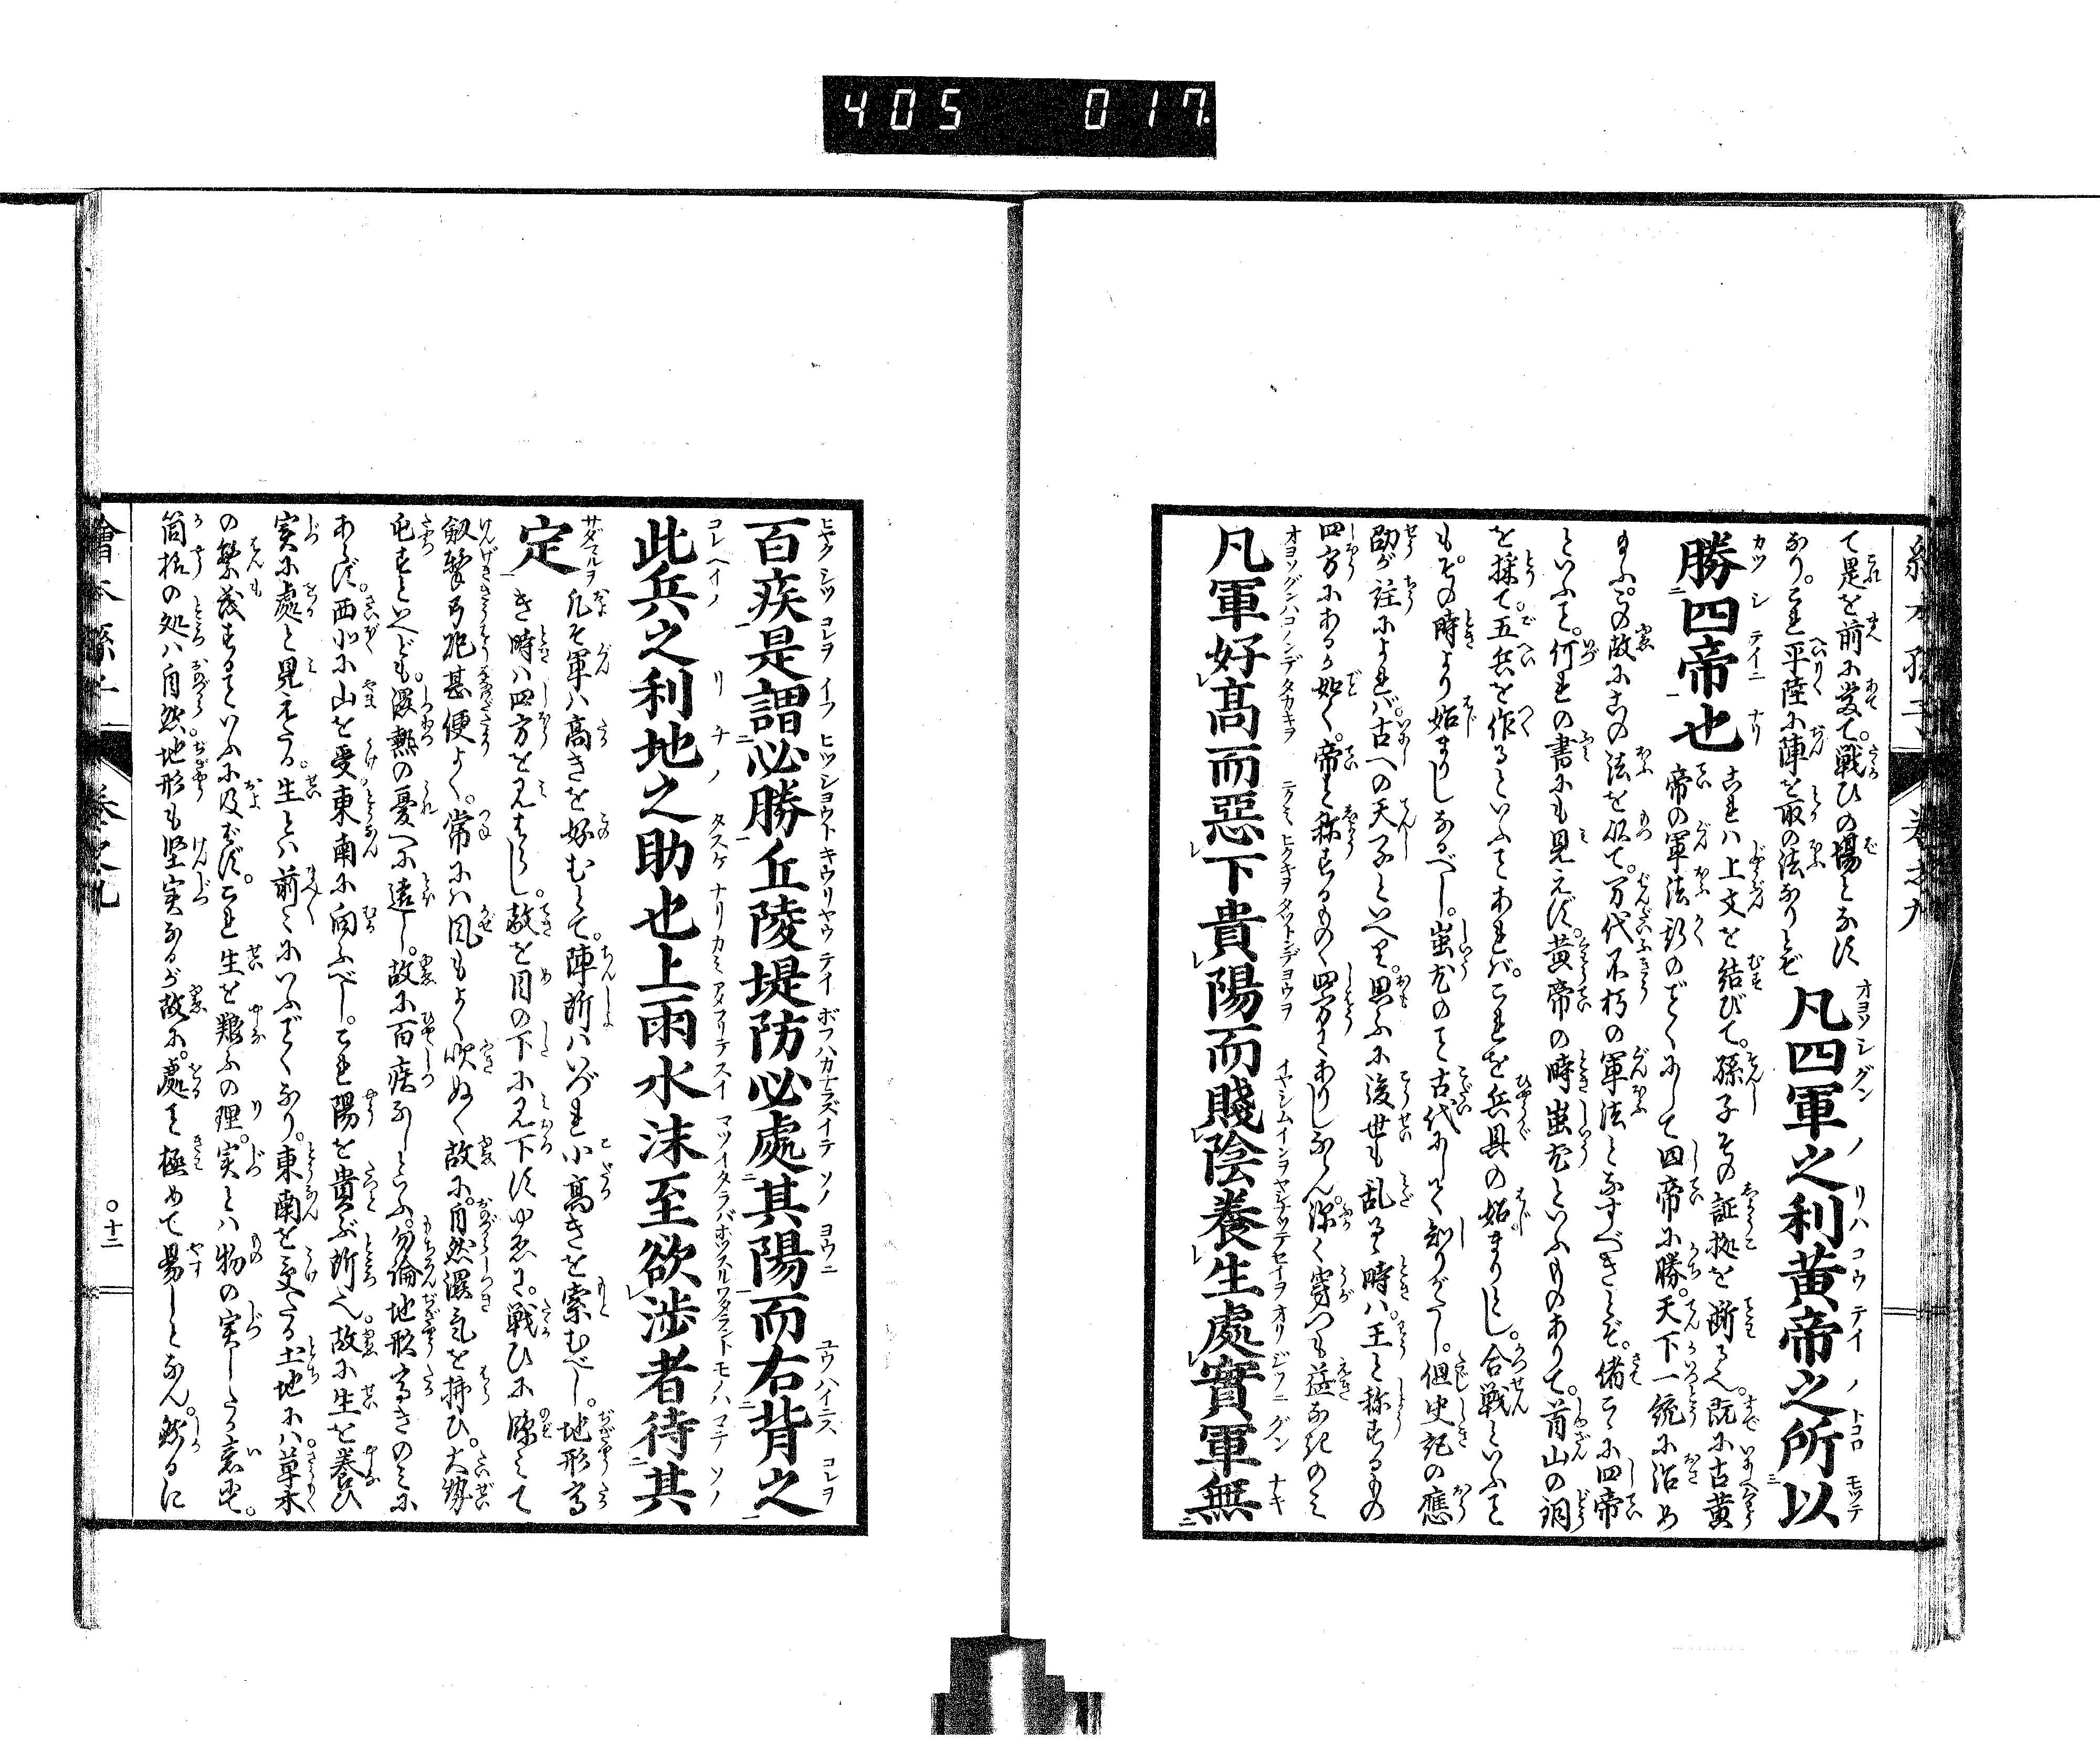 405 017
て是を前に当て。戦ひの場となす
なり。これ平陸に陣を取の法なりとぞ 凡四軍之利黄帝之所以
勝四帝也 これハ上文を結びて。孫子その証拠を断る。既に古黄
帝の軍法かくのごとくにして四帝に勝。天下一統に治め
給ふ。この故にこの法を以て。万代不朽の軍法となすべきことぞ。偖こゝに四帝
といふこと。何れの書にも見えず。黄帝の時蚩尤といふものありて。首山の銅
を採て。五兵を作るといふことあれバ。これを兵具の始まりとし。合戦といふこと
も。その時より始まりしなるべし。蚩尤のこと古代にして知りがたし。但史記の應
劭が註によれバ。古への天子といへり。思ふに後世も乱るゝ時ハ。王と称するもの
四方にあるが如く。帝と称するもの。四方にありしならん。深く穿つも益なきのミ
凡軍好髙而惡下貴陽而賤陰養生處實軍無
百疾是謂必勝丘陵堤防必處其陽而右背之
此兵之利地之助也上雨水沫至欲渉者待其
定 凡そ軍ハ高きを好むとて。陣所ハいづれ小高きを索むべし。地形高
き時ハ四方を見はらし。敵を目の下に見下すゆゑに。戦ひに臨ミて
劔撃弓砲甚便よく。常にハ風もよく吹ぬく故に。自然湿気を拂ひ。大勢
屯すといへども。湿熱の憂へに遠し。故に百疾なしといふ。勿論地形高きのミに
あらず。西北に山を受東南に向ふべし。これ陽を貴ぶ所へ。故に生を養ひ
実に處と見えたる。生とハ前々にいふごとくなり。東南を受たる土地にハ。草木
の繁茂することいふに及ばず。これ生を養ふの理。実とハ物の実したる意にて。
箇様の処ハ自然。地形も堅実なるが故に。處こと極めて易しとなん。然るに
繪本孫子 巻之九 〇十二